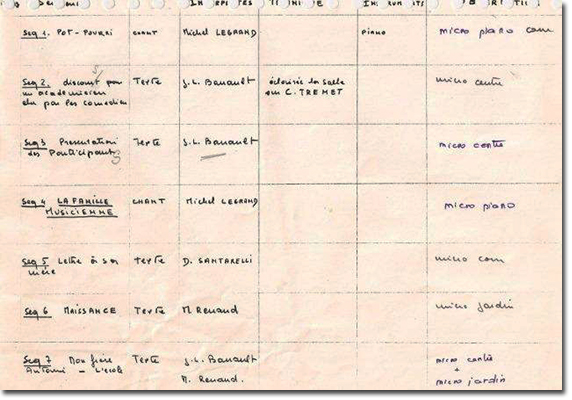 Seq 1. POT-POURRI CHANT Michel LEGRAND PIANO micro piano
Seq 2. discours pour TEXTE J.L. Barrault éclairée la salle micro centre
un academicien sur C. TRENET
par les comediens
Seq 3 Presentation TEXTE J.L. Barrault micro centre
des Participants
Seq 4 LA FAMILLE CHANT Michel LEGRAND micro piano
MUSICIENNE
Seq 5 Lettre à sa TEXTE D. SANTARELLI micro
mère
Seq 6 NAISSANCE TEXTE M. Renaud micro jardin
Seq 7 Mon frère TEXTE J.L. Barrault micro centre
Antoni - L'école M. Renaud. +
micro jardin